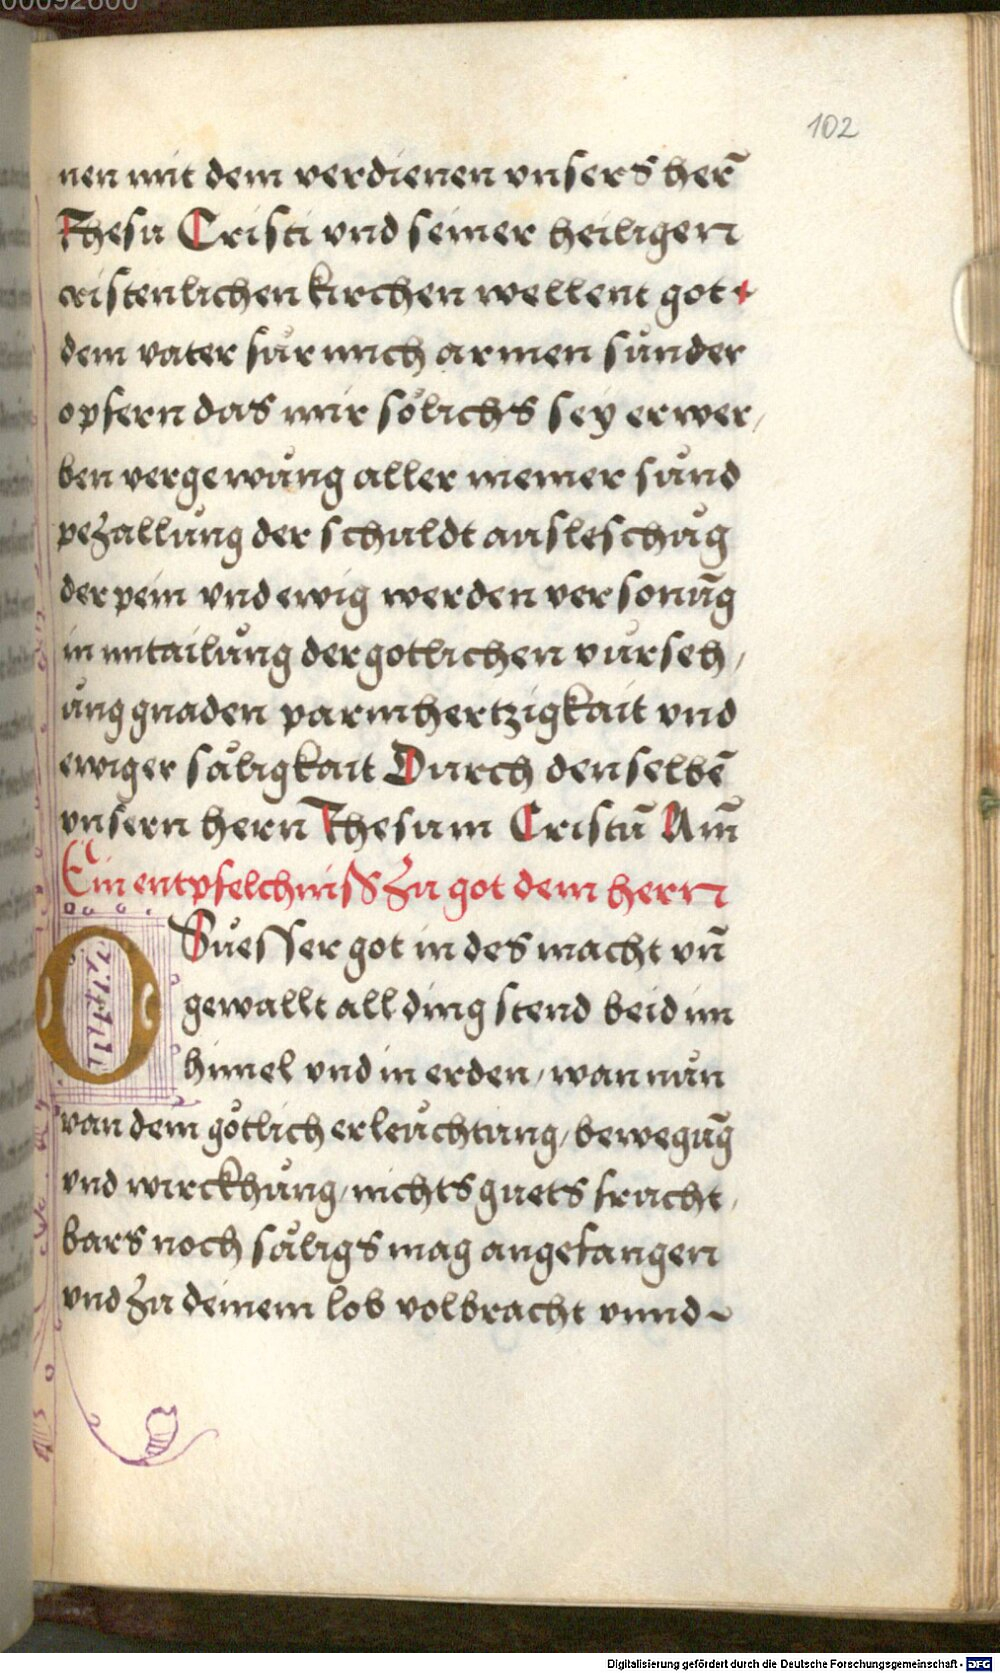 00092600
102
nen mit dem verdienen vnsers her̄
Jhesu Cristi vnd seiner heiligen
cristenlichen kirchen wellent got
dem vater fur mich armen sunder
opfern das mir sölichs sey erwer,
ben vergewung aller meiner sund
peʒallung der schuldt ausleschūg
der pein vnd ewig werden versonūg
in mitailung der gotlichen vurseh,
ung gnaden parmhertzigkait vnd
ewiger såligkait Durch denselbē
vnsern hern Jhesum Cristū Am̄
Ein entpfelchniss ʒu got dem hern
O Suesser got in des macht vn̄
gewallt all ding stend beid im
himel vnd in erden, wan nun
van dem götlich erleuchtung, bewegūg
vnd wirckhung, nichts guets frucht,
bars noch såligs mag angefangen
vnd ʒu deinem lob volbracht vnnd
Digitalisierung gefördert durch die Deutsche Forschungsgemeinschaft - DFG